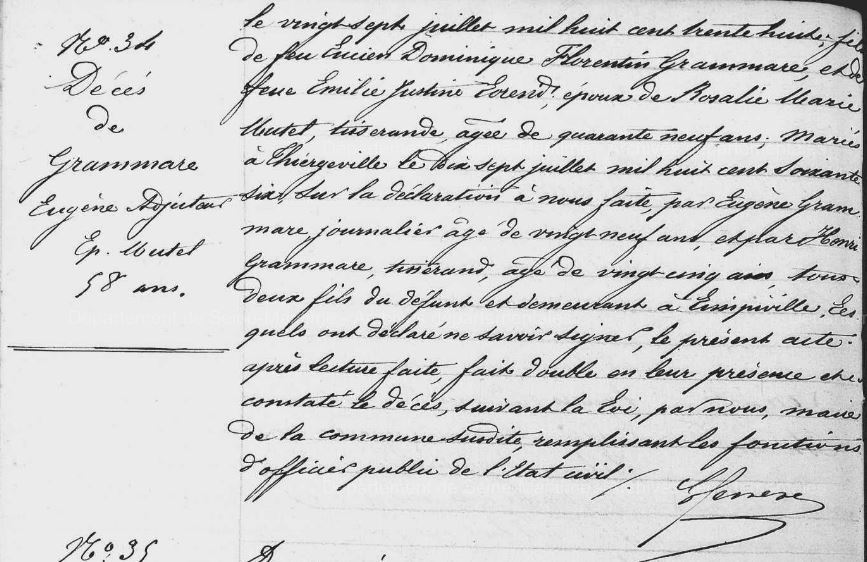 Nº. 34
Décés
de
Grammare
Eugène Adjuteur
Ep. Mutel
58 ans.
le vingt sept juillet mil huit cent trente huit, fils
de feu Lucien Dominique Florentin Grammare, et de
feue Emilie Justine Lorend. époux de Rosalie Marie
Mutel, tisserande, âgée de quarante neuf ans, mariés
à Thiergeville le dix sept juillet mil huit cent soixante
six, sur la déclaration à nous faite, par Eugène Gram
mare, journalier âgé de vingt neuf ans, et par Henri
Grammare, tisserand, âgé de vingt cinq ans, tous
deux fils du défunt et demeurant à Limpiville, Les
quels ont déclaré ne savoir signer, le présent acte
après lecture faite, fait double en leur présence et
constaté le décès, suivant la Loi, par nous, maire
de la commune susdite, remplissant les fonctions
d'officier public de l'Etat civil ./.
Nº. 35